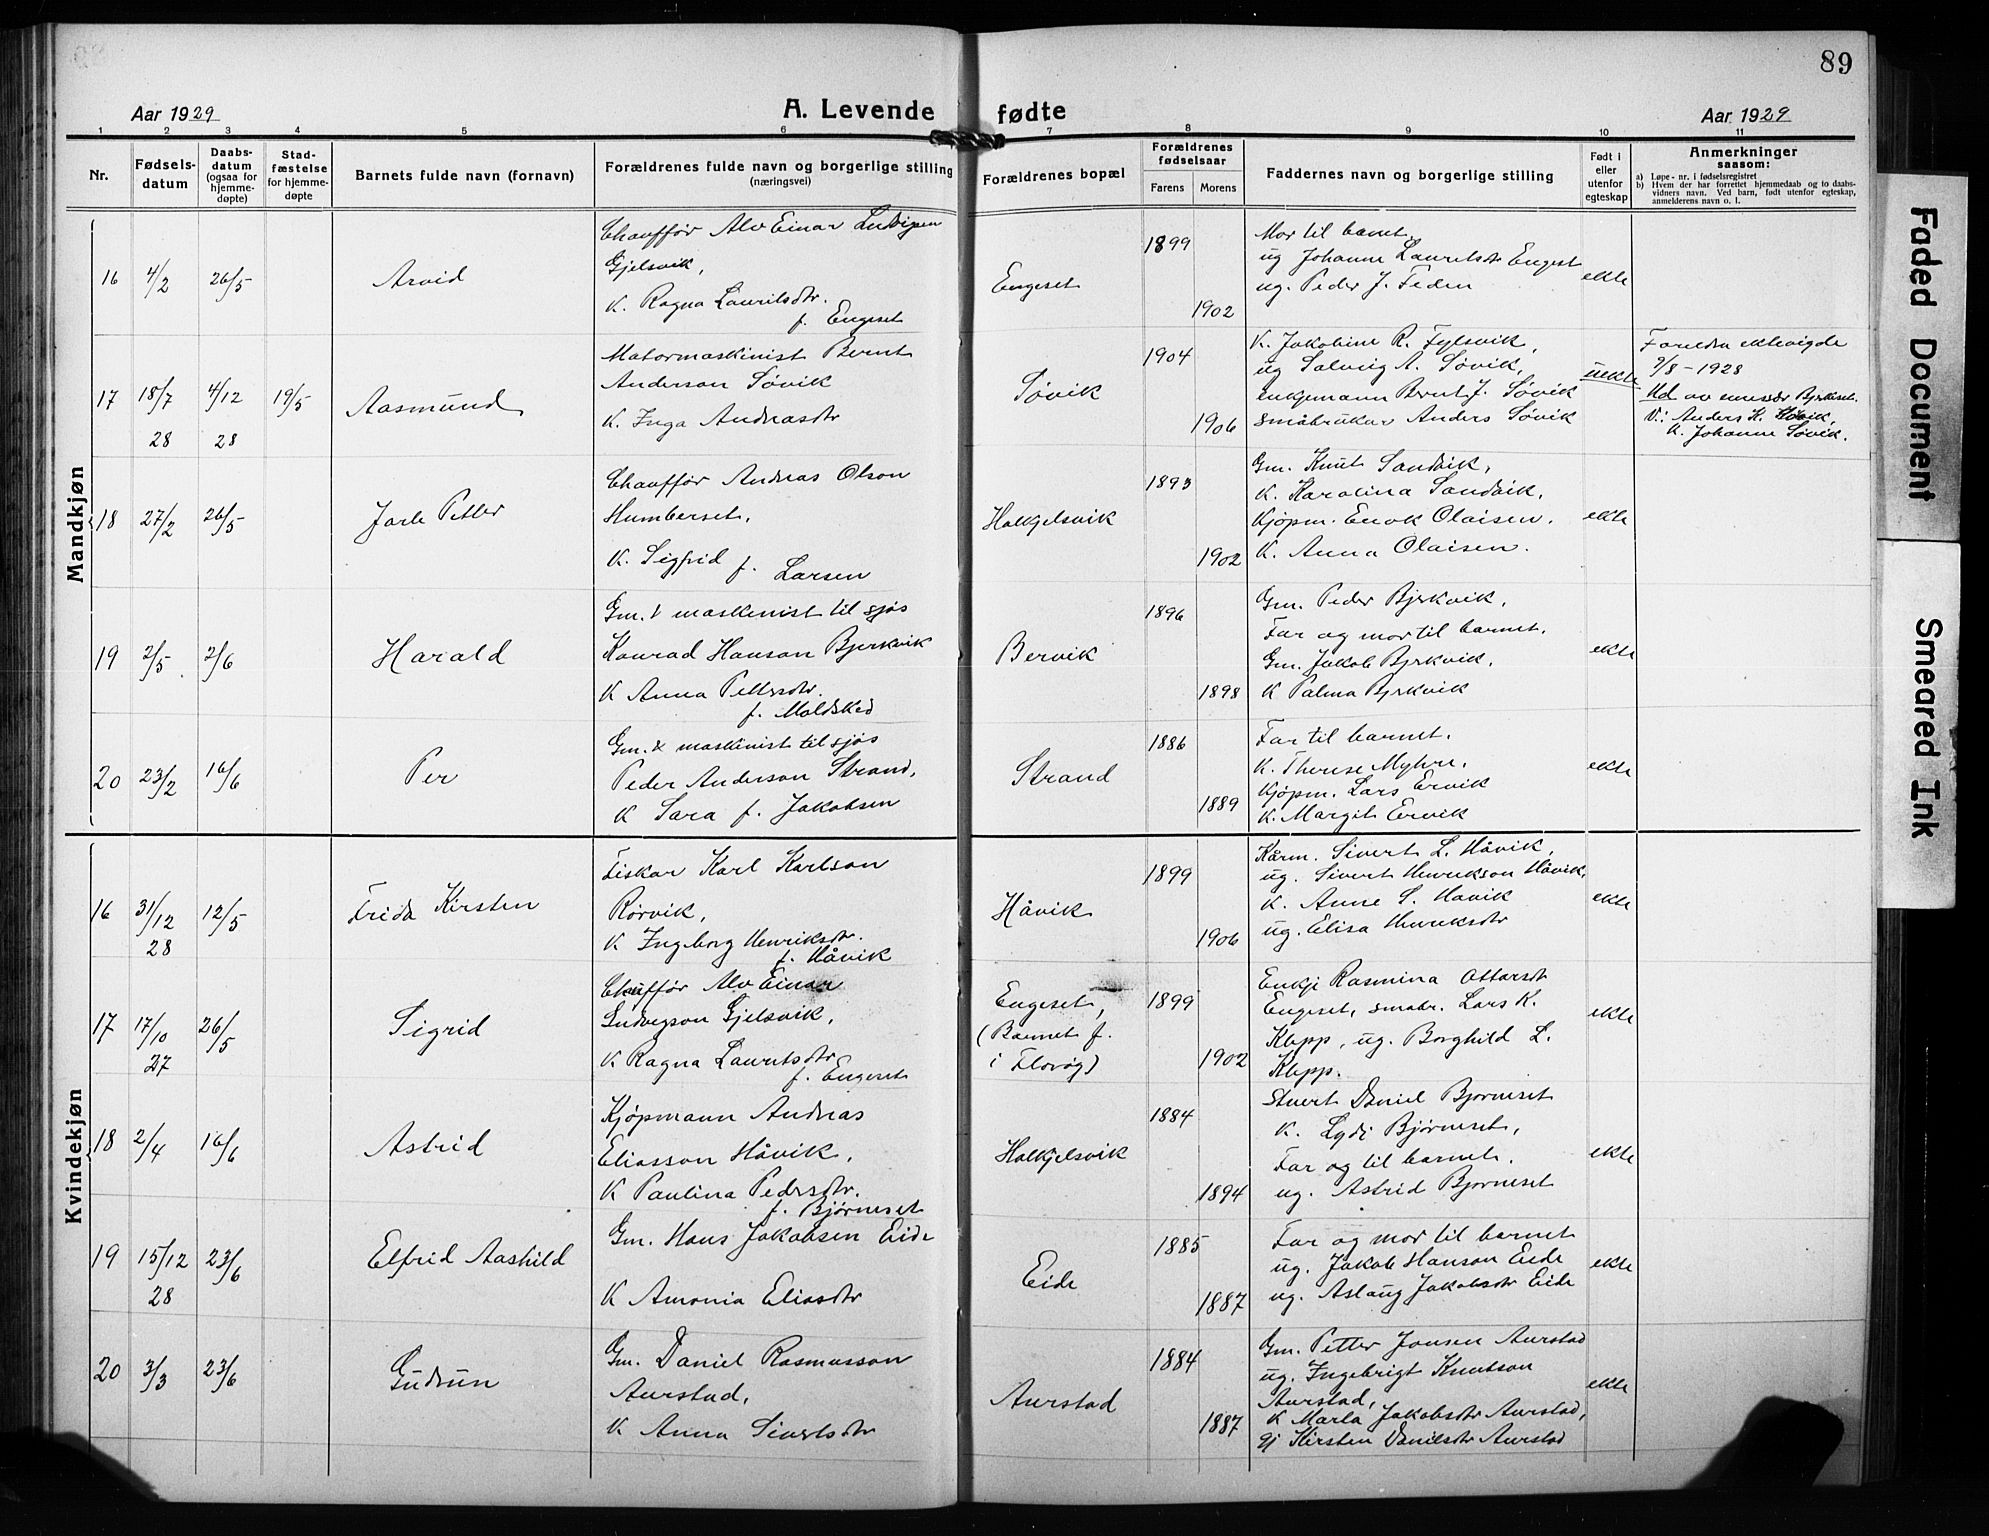 89
Aar 1929
A. Levende fødte
Aar 1929
1 2 3 4 5 6 7 8 9 10 11
Nr.
Fødsels-
datum
Daabs-
datum
(ogsaa for
hjemme-
døpte)
Stad-
fæstelse
for hjemme-
døpte
Barnets fulde navn (fornavn)
Forældrenes fulde navn og borgerlige stilling
(næringsvei)
Forældrenes bopæl
Forældrenes
fødselsaar
Farens
Morens
Faddernes navn og borgerlige stilling
Født i
eller
utenfor
egteskap
Anmerkninger
saasom:
a) Løpe-nr. i fødselsregistret
b) Hvem der har forrettet hjemmedaab og to daabs-
vidners navn. Ved barn, født utenfor egteskap,
anmelderens navn o. l.
Mandkjøn
16 4/2 26/5
Arvid
Chauffør Alv Einar Ludvigsen
Gjelsvik,
K. Ragna Lauritsdtr.
f. Engeset
Engeset
1899
1902
Mor til barnet,
ug Johanne Lauritsdtr Engeset
ug. Peder J. Feden
ekte
17 18/7 28 4/12 28 19/5
Aasmund
Motormaskinist Bernt
Anderson Søvik
K. Inga Andreasdtr
Søvik
1904
1906
K. Jakobine R. Fylsvik,
ug Solveig A. Søvik,
enkjemann Bernt J. Søvik
småbrukar Anders Søvik
uekte
Foreldra ektevigde
9/8 - 1928
Ud av Bjerkeset.
V.: Anders K. Søvik,
K. Johanne Søvik.
18 27/2 26/5
Jarle Petter
Chauffør Andreas Olson
Humberset,
K. Sigfrid f. Larsen
Halkjelsvik
1893
1902
Gm. Knut Sandvik,
K. Karolina Sandvik,
Kjøpm. Enok Olaisen,
K. Anna Olaisen.
ekte
19 2/5 2/6
Harald
Gm. & maskinist til sjøs
Konrad Hanson Bjerkvik
K Anna Pettersdtr.
f. Moldskred
Bervik
1896
1898
Gm. Peder Bjerkvik,
Far og mor til barnet,
Gm. Jakob Bjerkvik,
K Palma Bjerkvik
ekte
20 23/2 16/6
Per
Gm. & maskinist til sjøs
Peder Anderson Strand,
K Sara f. Jakobsen
Strand
1886
1889
Far til barnet,
K. Therese Myhre,
Kjøpm. Lars Ervik
K. Margit Ervik
ekte
Kvindekjøn
16 31/12 28 12/5
Frida Kirsten
Fiskar Karl Karlson
Rørvik,
K Ingeborg Henriksdtr.
f. Håvik
Håvik
1899
1906
Kårm. Sivert L. Håvik,
ug. Sivert Henrikson Håvik,
K. Anne S. Håvik
ug. Elisa Henriksdtr
ekte
17 17/10 27 26/5
Sigrid
Chauffør Alv Einar
Ludvigson Gjelsvik,
K Ragna Lauritsdtr
f. Engeset
Engeset,
(Barnet f.
i Florøy)
1899
1902
Enkje Rasmina Ottarsdtr
Engeset, småbr. Lars K.
Klepp, ug. Borghild L.
Klepp.
ekte
18 2/4 16/6
Astrid
Kjøpmann Andreas
Eliasson Håvik,
K Paulina Pedersdtr.
f. Bjørneset
Halkjelsvik
1884
1894
Stuert Daniel Bjørneset
K. Lydi Bjørneset,
Far og til barnet,
ug. Astrid Bjørneset
ekte
19 15/12 28 23/6
Elfrid Aashild
Gm. Hans Jakobsen Eide
K Amonia Eliasdtr
Eide
1885
1887
Far og mor til barnet
ug. Jakob Hanson Eide
ug. Aslaug Jakobsdtr Eide
ekte
20 3/3 23/6
Gudrun
Gm. Daniel Rasmusson
Aurstad,
K Anna Sivertsdtr
Aurstad
1884
1887
Gm. Petter Jonsen Aurstad
ug. Ingebrigt Knutson
Aurstad,
K Marta Jakobsdtr Aurstad,
gj Kirsten Danielsdtr Aurstad
ekte
Faded Document
Smeared Ink